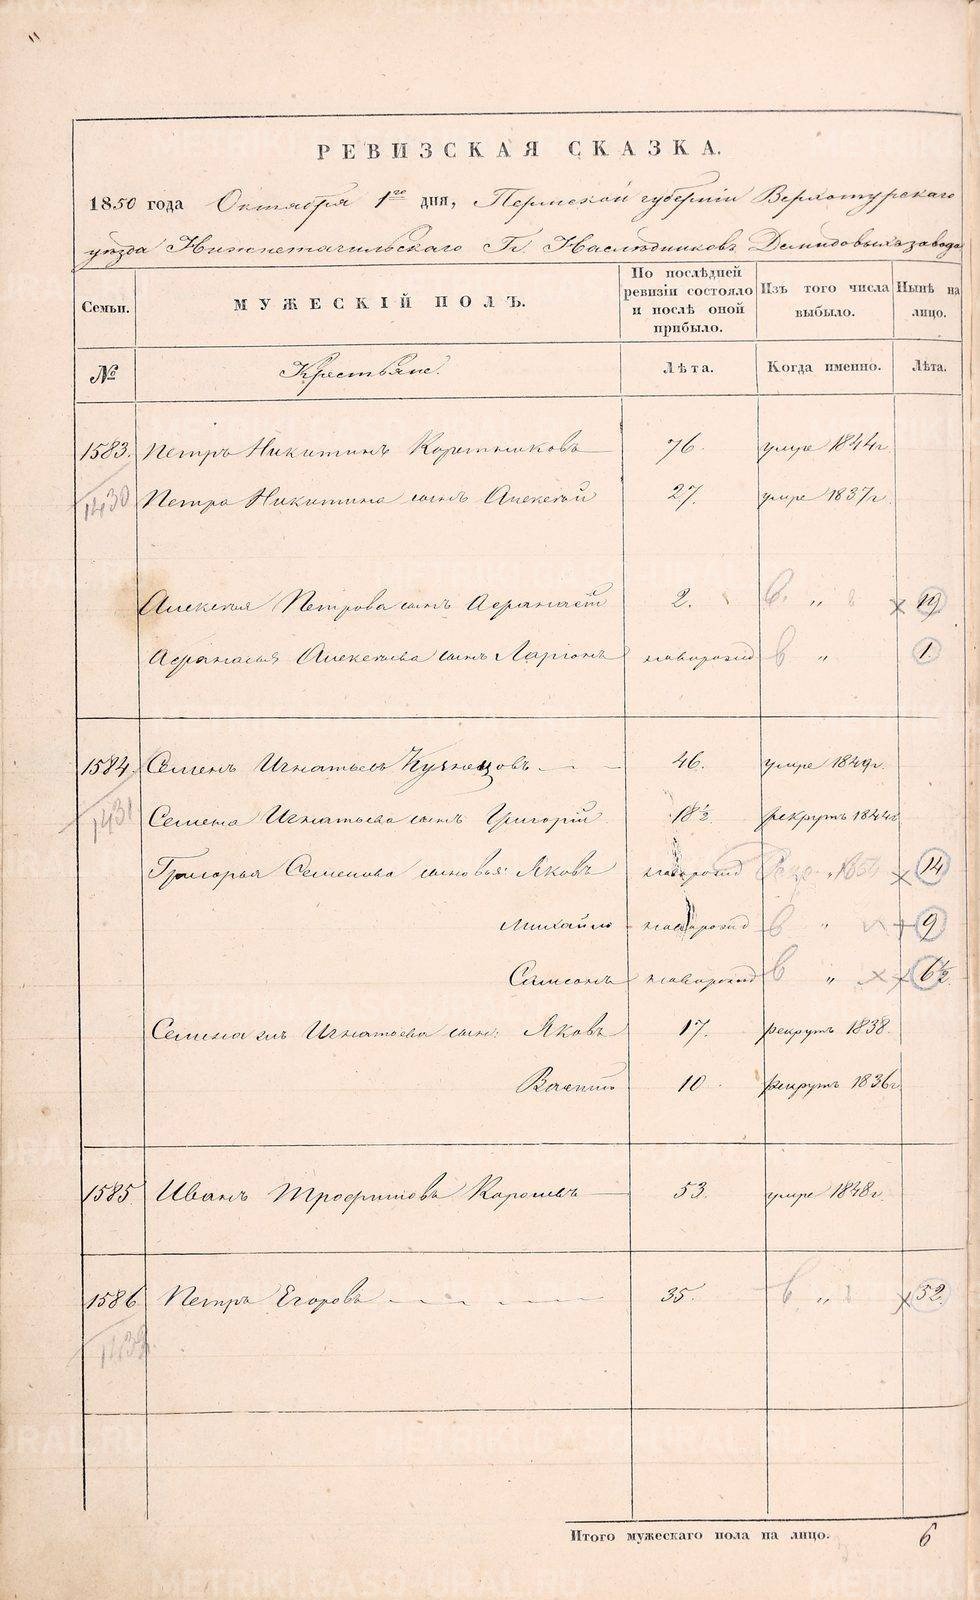 РЕВИЗСКАЯ СКАЗКА.
1850 года Октября 1го дня, Пермской губерніи Верхотурскаго
уѣзда Нижнетагильскаго Гг. Наслѣдниковъ Демидовыхъ завода
Семьи.
МУЖЕСКІЙ ПОЛЪ.
По послѣдней ревизіи состояло и послѣ оной прибыло.
Изъ того числа выбыло.
Нынѣ на лицо.
№
Крестьяне.
Лѣта.
Когда именно.
Лѣта.
1583. Петръ Никитинъ Коротниковъ 76. умре 1844г
1430 Петра Никитина сынъ Алексѣй 27. умре 1837г.
Алексѣя Петрова сынъ Афанасій 2. " 19
Афанасья Алексѣева сынъ Ларіонъ новорожд " 1.
1584. Семенъ Игнатьевъ Кузнецовъ 46. умре 1849г.
1431 Семена Игнатьева сынъ Григорій 18½ рекрутъ 1844г
Григорья Семенова сыновья: Яковъ новорожд " 14
Михайло новорожд " 9
Самсонъ новорожд " 6½
Семена Игнатьева сын: Яковъ 17. рекрутъ 1838.
10. рекрутъ 1836г.
1585. Иванъ Трофимовъ 53. умре 1848г.
1586. Петръ Егоровъ 35. " 52.
1432
Итого мужескаго пола на лицо. 6
METRIKI.GASO-URAL.RU